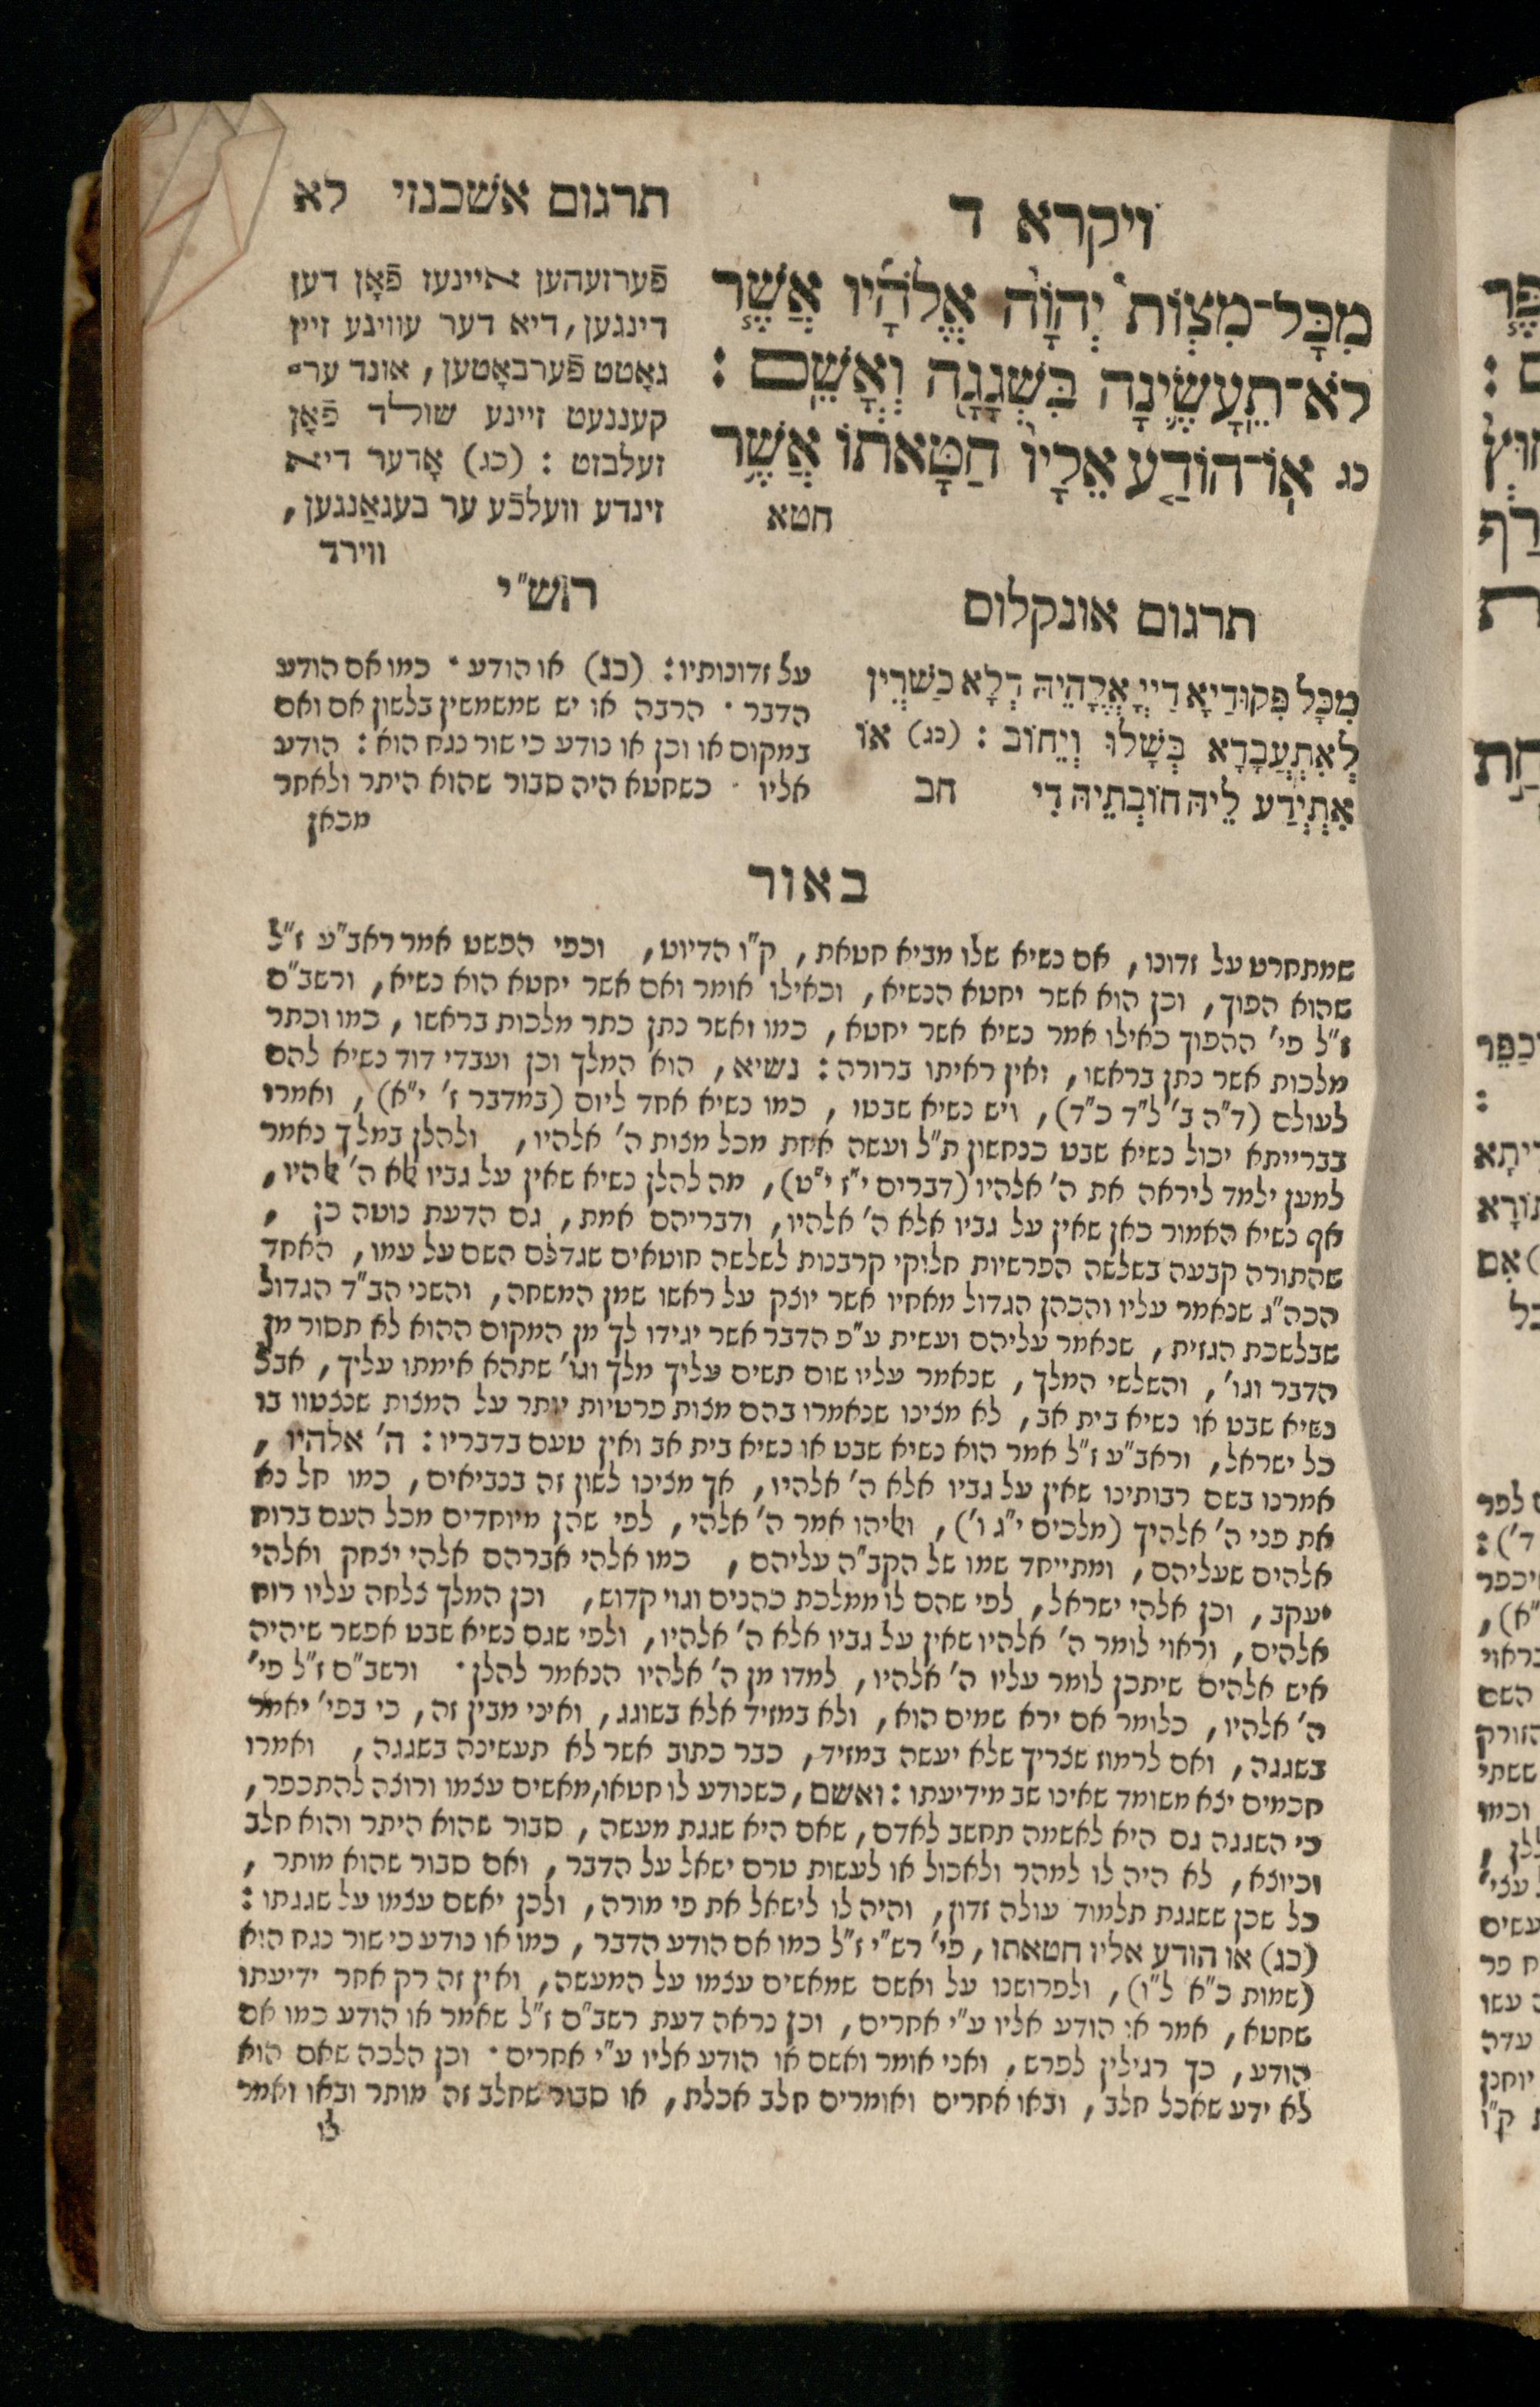 ויקרא ד
מִכָּל־מִצְוֺת֩ יְהֹוָ֨ה אֱלֹהָ֜יו אֲשֶׁ֧ר
לֹא־תֵעָשֶׂ֛ינָה בִּשְׁגָגָ֖ה וְאָשֵֽׁם :
כג אֽוֹ־הוֹדַ֤ע אֵלָיו֙ חַטָּאת֔וֹ אֲשֶׁ֥ר
חטא
תרגום אשכנזי לא
פֿערזעהען איינעז פֿאָן דען
דינגען, דיא דער עוויגע זיין
גאָטט פֿערבאָטען, אונד ער־
קעננעט זיינע שולד פֿאָן
זעלבזט : (כג) אָדער דיא
זינדע וועלכֿע ער בעגאַנגען,
ווירד
תרגום אונקלוס
מִכָּל פִּקוּדַיָא דַיְיָ אֱלָהֵיהּ דְלָא כַשְׁרִין
לְאִתְעֲבָדָא בְּשָׁלוּ וְיֵחוֹב : (כג) אוֹ
אִתְיְדַע לֵיהּ חוֹבְתֵיהּ דִי
חב
רש"י
על זדונותיו : (כג) או הודע · כמו אם הודע
הדבר · הרבה או יש שמשמשין בלשון אם ואם
במקום או וכן או נודע כי שור נגח הוא : הודע
אליו · כשחטא היה סבור שהוא היתר ולאחר
מכאן
באור
שמתחרט על זדונו, אם נשיא שלו מביא חטאת, ק"ו הדיוט, וכפי הפשט אמר ראב"ע ז"ל
שהוא הפוך, וכן הוא אשר יחטא הנשיא, וכאילו אומר ואם אשר יחטא הוא נשיא, ורשב"ם
ז"ל פי' ההפוך כאילו אמר נשיא אשר יחטא, כמו ואשר נתן כתר מלכות בראשו, כמו וכתר
מלכות אשר נתן בראשו, ואין ראיתו ברורה : נשיא, הוא המלך וכן ועבדי דוד נשיא להם
לעולם (ד"ה ב' ל"ד כ"ד), ויש נשיא שבטו, כמו נשיא אחד ליום (במדבר ז' י"א), ואמרו
בברייתא יכול נשיא שבט כנחשון ת"ל ועשה אחת מכל מצות ה' אלהיו, ולהלן במלך נאמר
למען ילמד ליראה את ה' אלהיו (דברים י"ז י"ט), מה להלן נשיא שאין על גביו אלא ה' אלהיו,
אף נשיא האמור כאן שאין על גביו אלא ה' אלהיו, ודבריהם אמת, גם הדעת נוטה כן,
שהתורה קבעה בשלשה הפרשיות חלוקי קרבנות לשלשה חוטאים שגדלם השם על עמו, האחד
הכה"ג שנאמר עליו והכהן הגדול מאחיו אשר יוצק על ראשו שמן המשחה, והשני הב"ד הגדול
שבלשכת הגזית, שנאמר עליהם ועשית ע"פ הדבר אשר יגידו לך מן המקום ההוא לא תסור מן
הדבר וגו', והשלשי המלך, שנאמר עליו שום תשים עליך מלך וגו' שתהא אימתו עליך, אבל
נשיא שבט או נשיא בית אב, לא מצינו שנאמרו בהם מצות פרטיות יותר על המצות שנצטוו בו
כל ישראל, וראב"ע ז"ל אמר הוא נשיא שבט או נשיא בית אב ואין טעם בדבריו : ה' אלהיו,
אמרנו בשם רבותינו שאין על גביו אלא ה' אלהיו, אך מצינו לשון זה בנביאים, כמו חל נא
את פני ה' אלהיך (מלכים י"ג ו'), ואליהו אמר ה' אלהי, לפי שהן מיוחדים מכל העם ברוח
אלהים שעליהם, ומתייחד שמו של הקב"ה עליהם, כמו אלהי אברהם אלהי יצחק ואלהי
יעקב, וכן אלהי ישראל, לפי שהם לו ממלכת כהנים וגוי קדוש, וכן המלך צלחה עליו רוח
אלהים, וראוי לומר ה' אלהיו שאין על גביו אלא ה' אלהיו, ולפי שגם נשיא שבט אפשר שיהיה
איש אלהים שיתכן לומר עליו ה' אלהיו, למדו מן ה' אלהיו הנאמר להלן · ורשב"ם ז"ל פי'
ה' אלהיו, כלומר אם ירא שמים הוא, ולא במזיד אלא בשוגג, ואיני מבין זה, כי בפי' יאמר
בשגגה, ואם לרמוז שצריך שלא יעשה במזיד, כבר כתוב אשר לא תעשינה בשגגה, ואמרו
חכמים יצא משומד שאינו שב מידיעתו : ואשם, כשנודע לו חטאו, מאשים עצמו ורוצה להתכפר,
כי השגגה גם היא לאשמה תחשב לאדם, שאם היא שגגת מעשה, סבור שהוא היתר והוא חלב
וכיוצא, לא היה לו למהר ולאכול או לעשות טרם ישאל על הדבר, ואם סבור שהוא מותר,
כל שכן ששגגת תלמוד עולה זדון, והיה לו לישאל את פי מורה, ולכן יאשם עצמו על שגגתו :
(כג) או הודע אליו חטאתו, פי' רש"י ז"ל כמו אם הודע הדבר, כמו או נודע כי שור נגח הוא
(שמות כ"א ל"ו), ולפרושנו על ואשם שמאשים עצמו על המעשה, ואין זה רק אחר ידיעתו
שחטא, אמר או הודע אליו ע"י אחרים, וכן נראה דעת רשב"ם ז"ל שאמר או הודע כמו אם
הודע, כך רגילין לפרש, ואני אומר ואשם או הודע אליו ע"י אחרים · וכן הלכה שאם הוא
לא ידע שאכל חלב, ובאו אחרים ואומרים חלב אכלת, או סבור שחלב זה מותר ובאו ואמר
לו